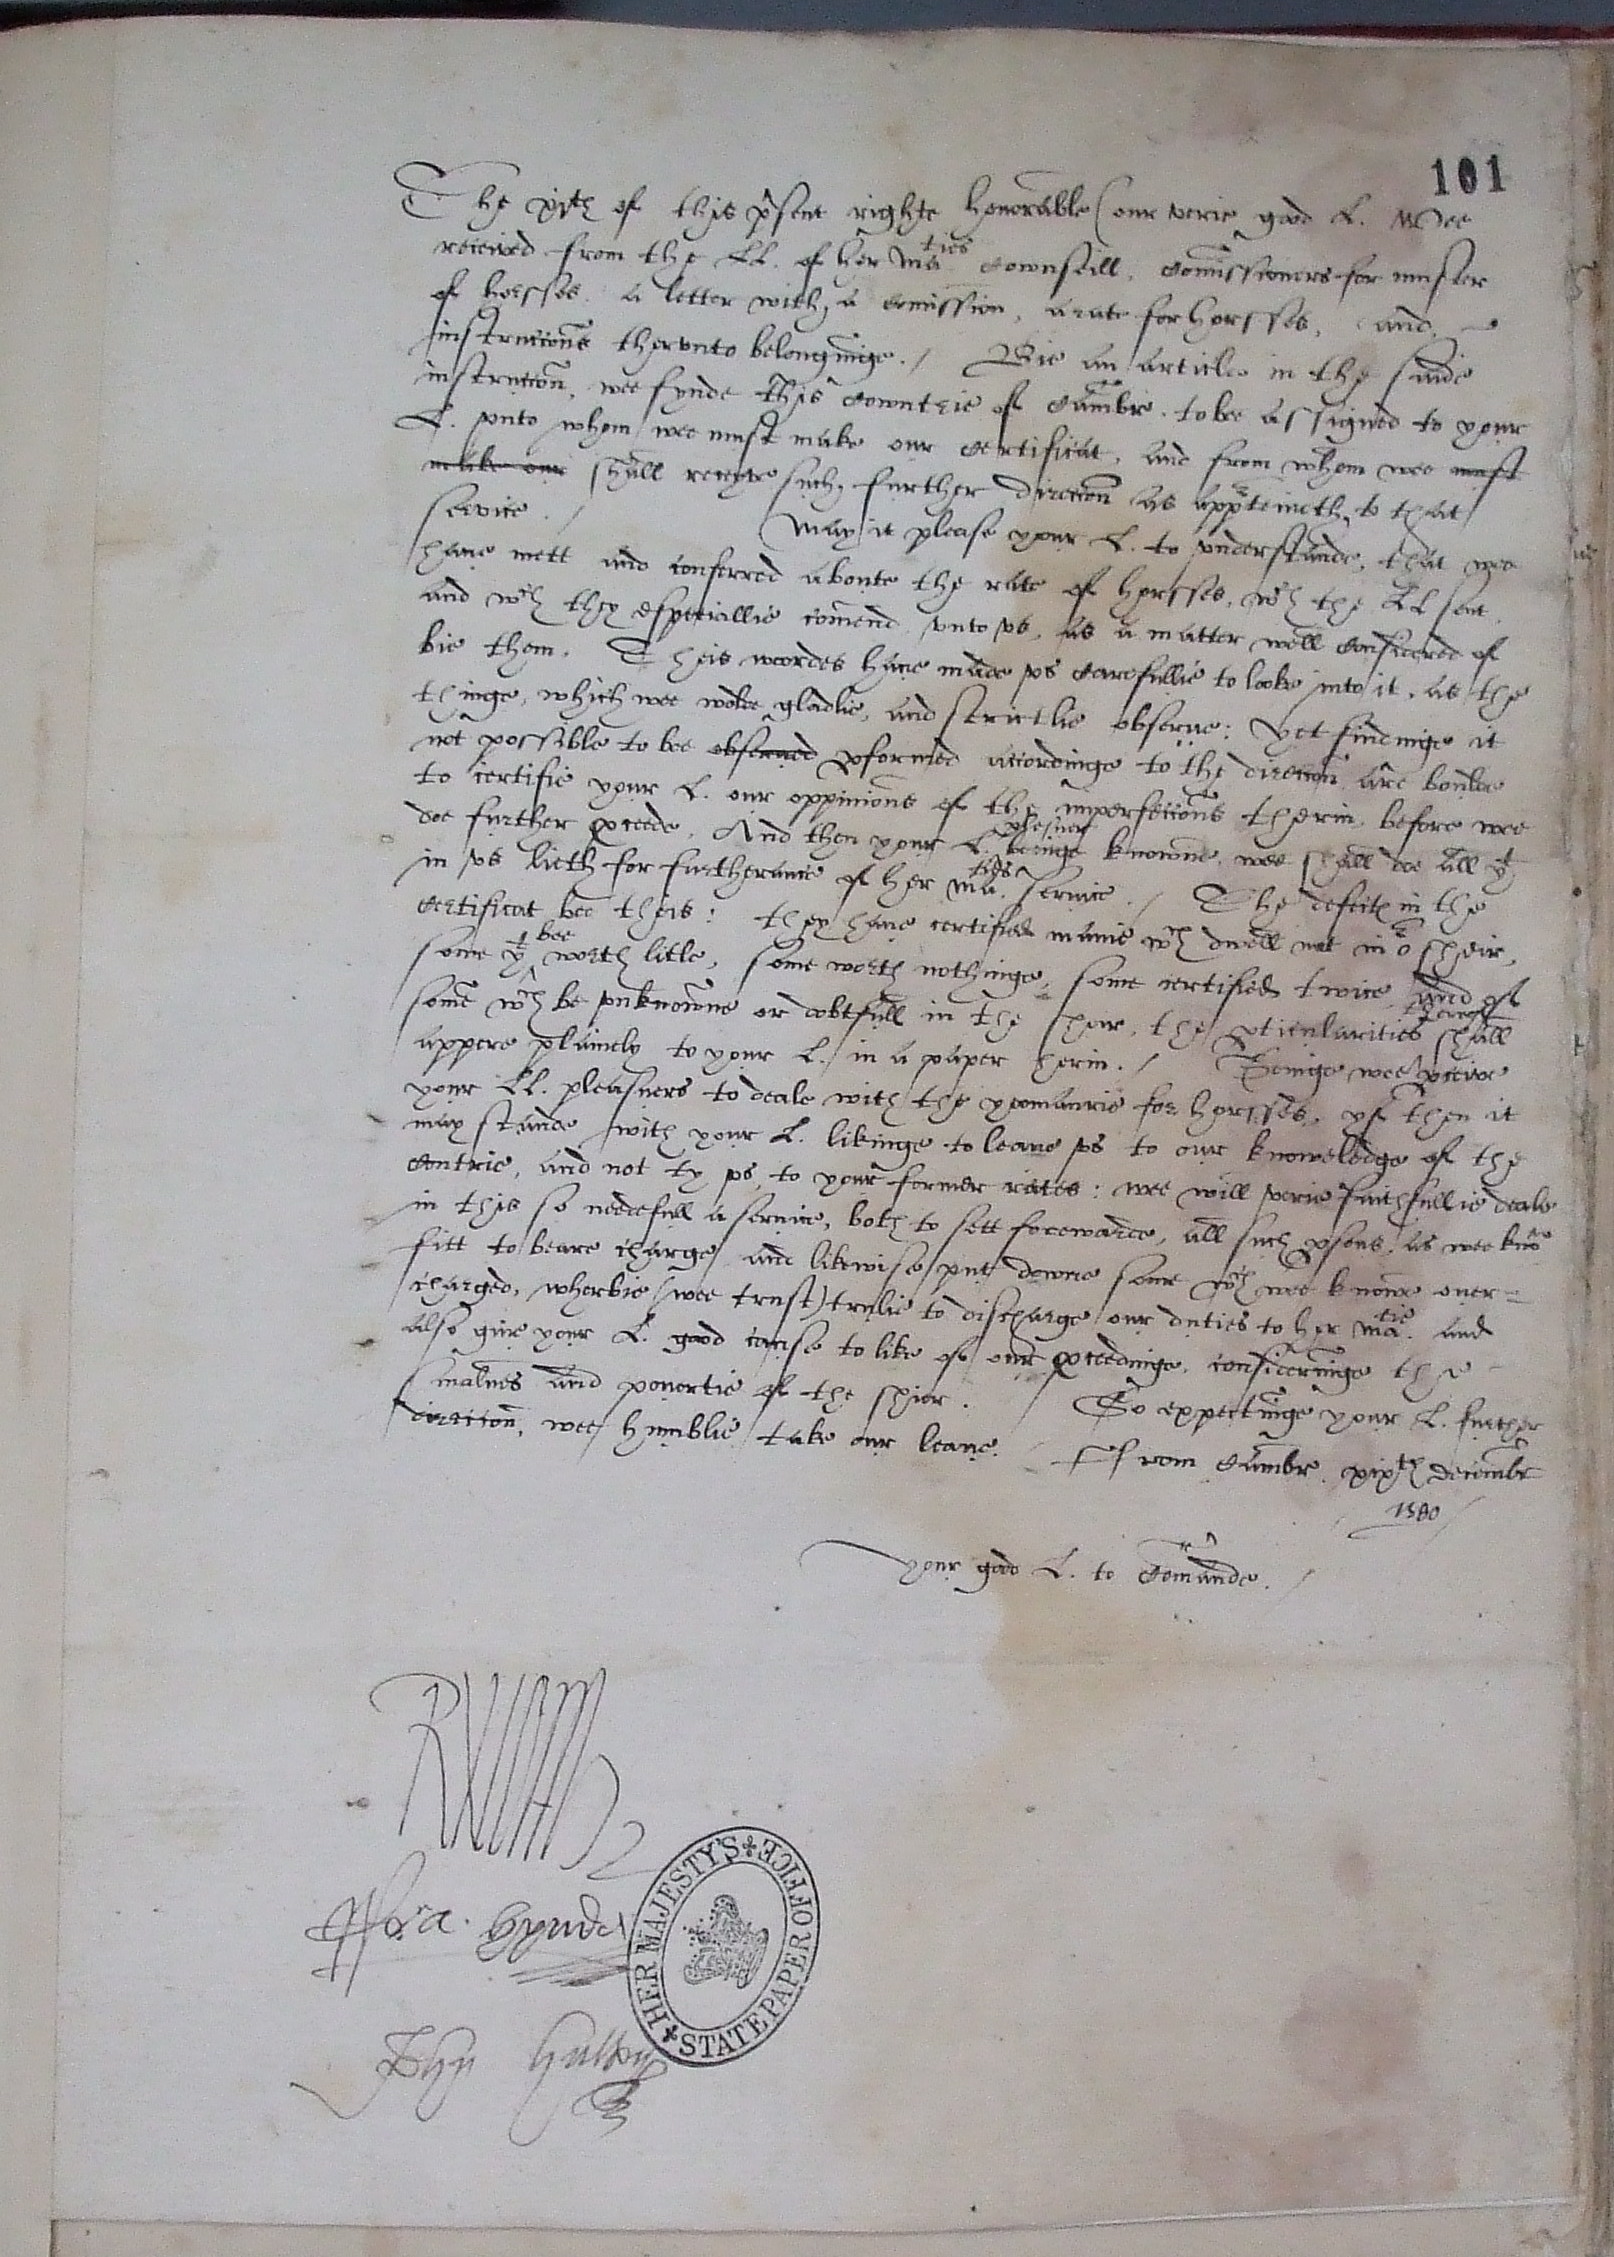 101
The xjth of this psent righte honorable (our verie good L. Wee
receiued from the LL. of her maties Cownseill, Comissioners for muster
of horsses, a letter with a Comission, a rate for horsses, and
instructions therunto belonginge. / Bie an article in the saide
instruction, wee fynde this Cowntrie of Cambr. to bee assigned to your
L. vnto whom wee must make our Certificat, and from whom wee must
make our shall receyve such further direction as apperteineth to that
service. / May it please your L. to vnderstande, that wee
haue mett and conferred aboute the rate of horsses, wch the LL sent,
and wch they especiallie comend vnto vs, as a matter well Considered of
bie them. Theis woordes haue made vs Carefullie to looke into it, as the
thinge, which wee wolde gladlie, and strictlie observe: Yet findinge it
not possible to bee observed pformed accordinge to the direction are bounde
to certifie your L. our oppinions of the imperfections therin, before wee
doe further proceede. And then your L. plesiur beinge knowne, wee shall doe all yt
in vs lieth for furtherance of her maties service. / The defects in the
Certificat bee theis: they haue certified manie wch dwell not in ye sheir,
some yt bee worth litle, some worth nothinge, some certified twice, and of
some wch be vnknowne or dobtfull in the shear, the pticularities therof shall
appere plainely to your L. in a paper herin. / Seinge wee pceive
your LL. pleasures to deale with the yeomanrie for horsses, yf then it
may stande with your L. likinge to leaue vs to our knoweledge of the
Contrie, and not ty vs, to your former rates: wee will verie faithfullie deale
in this so needefull a service, both to sett forewarde, all such psons, as wee kno
fitt to beare charge and likewise put downe some wch wee knowe ouer=
charged, wherbie (wee trust) trulie to discharge our duties to her matie. and
also giue your L. good cause to like of our proceedinge, consideringe the
smalnes and povertie of the shier. / So expectinge your L. further
direction, wee humblie take our leave. / From Cambr. xixth decembr
1580
Your good L. to Comande. /
Fra. Hynde
HER MAJESTY'S STATE PAPER OFFICE